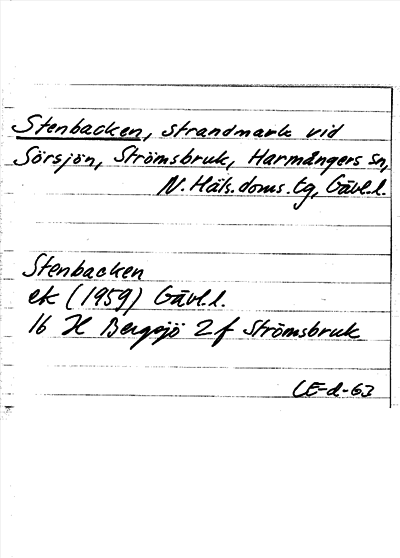 Stenbacken, strandmark vid
Sörsjön, Strömsbruk, Harmångers sn,
N. Häls. doms. tg, Gävl.l.
Stenbacken
ek (1959) Gävl.l.
16 H Bergsjö 2f Strömsbruk
LE-d-63